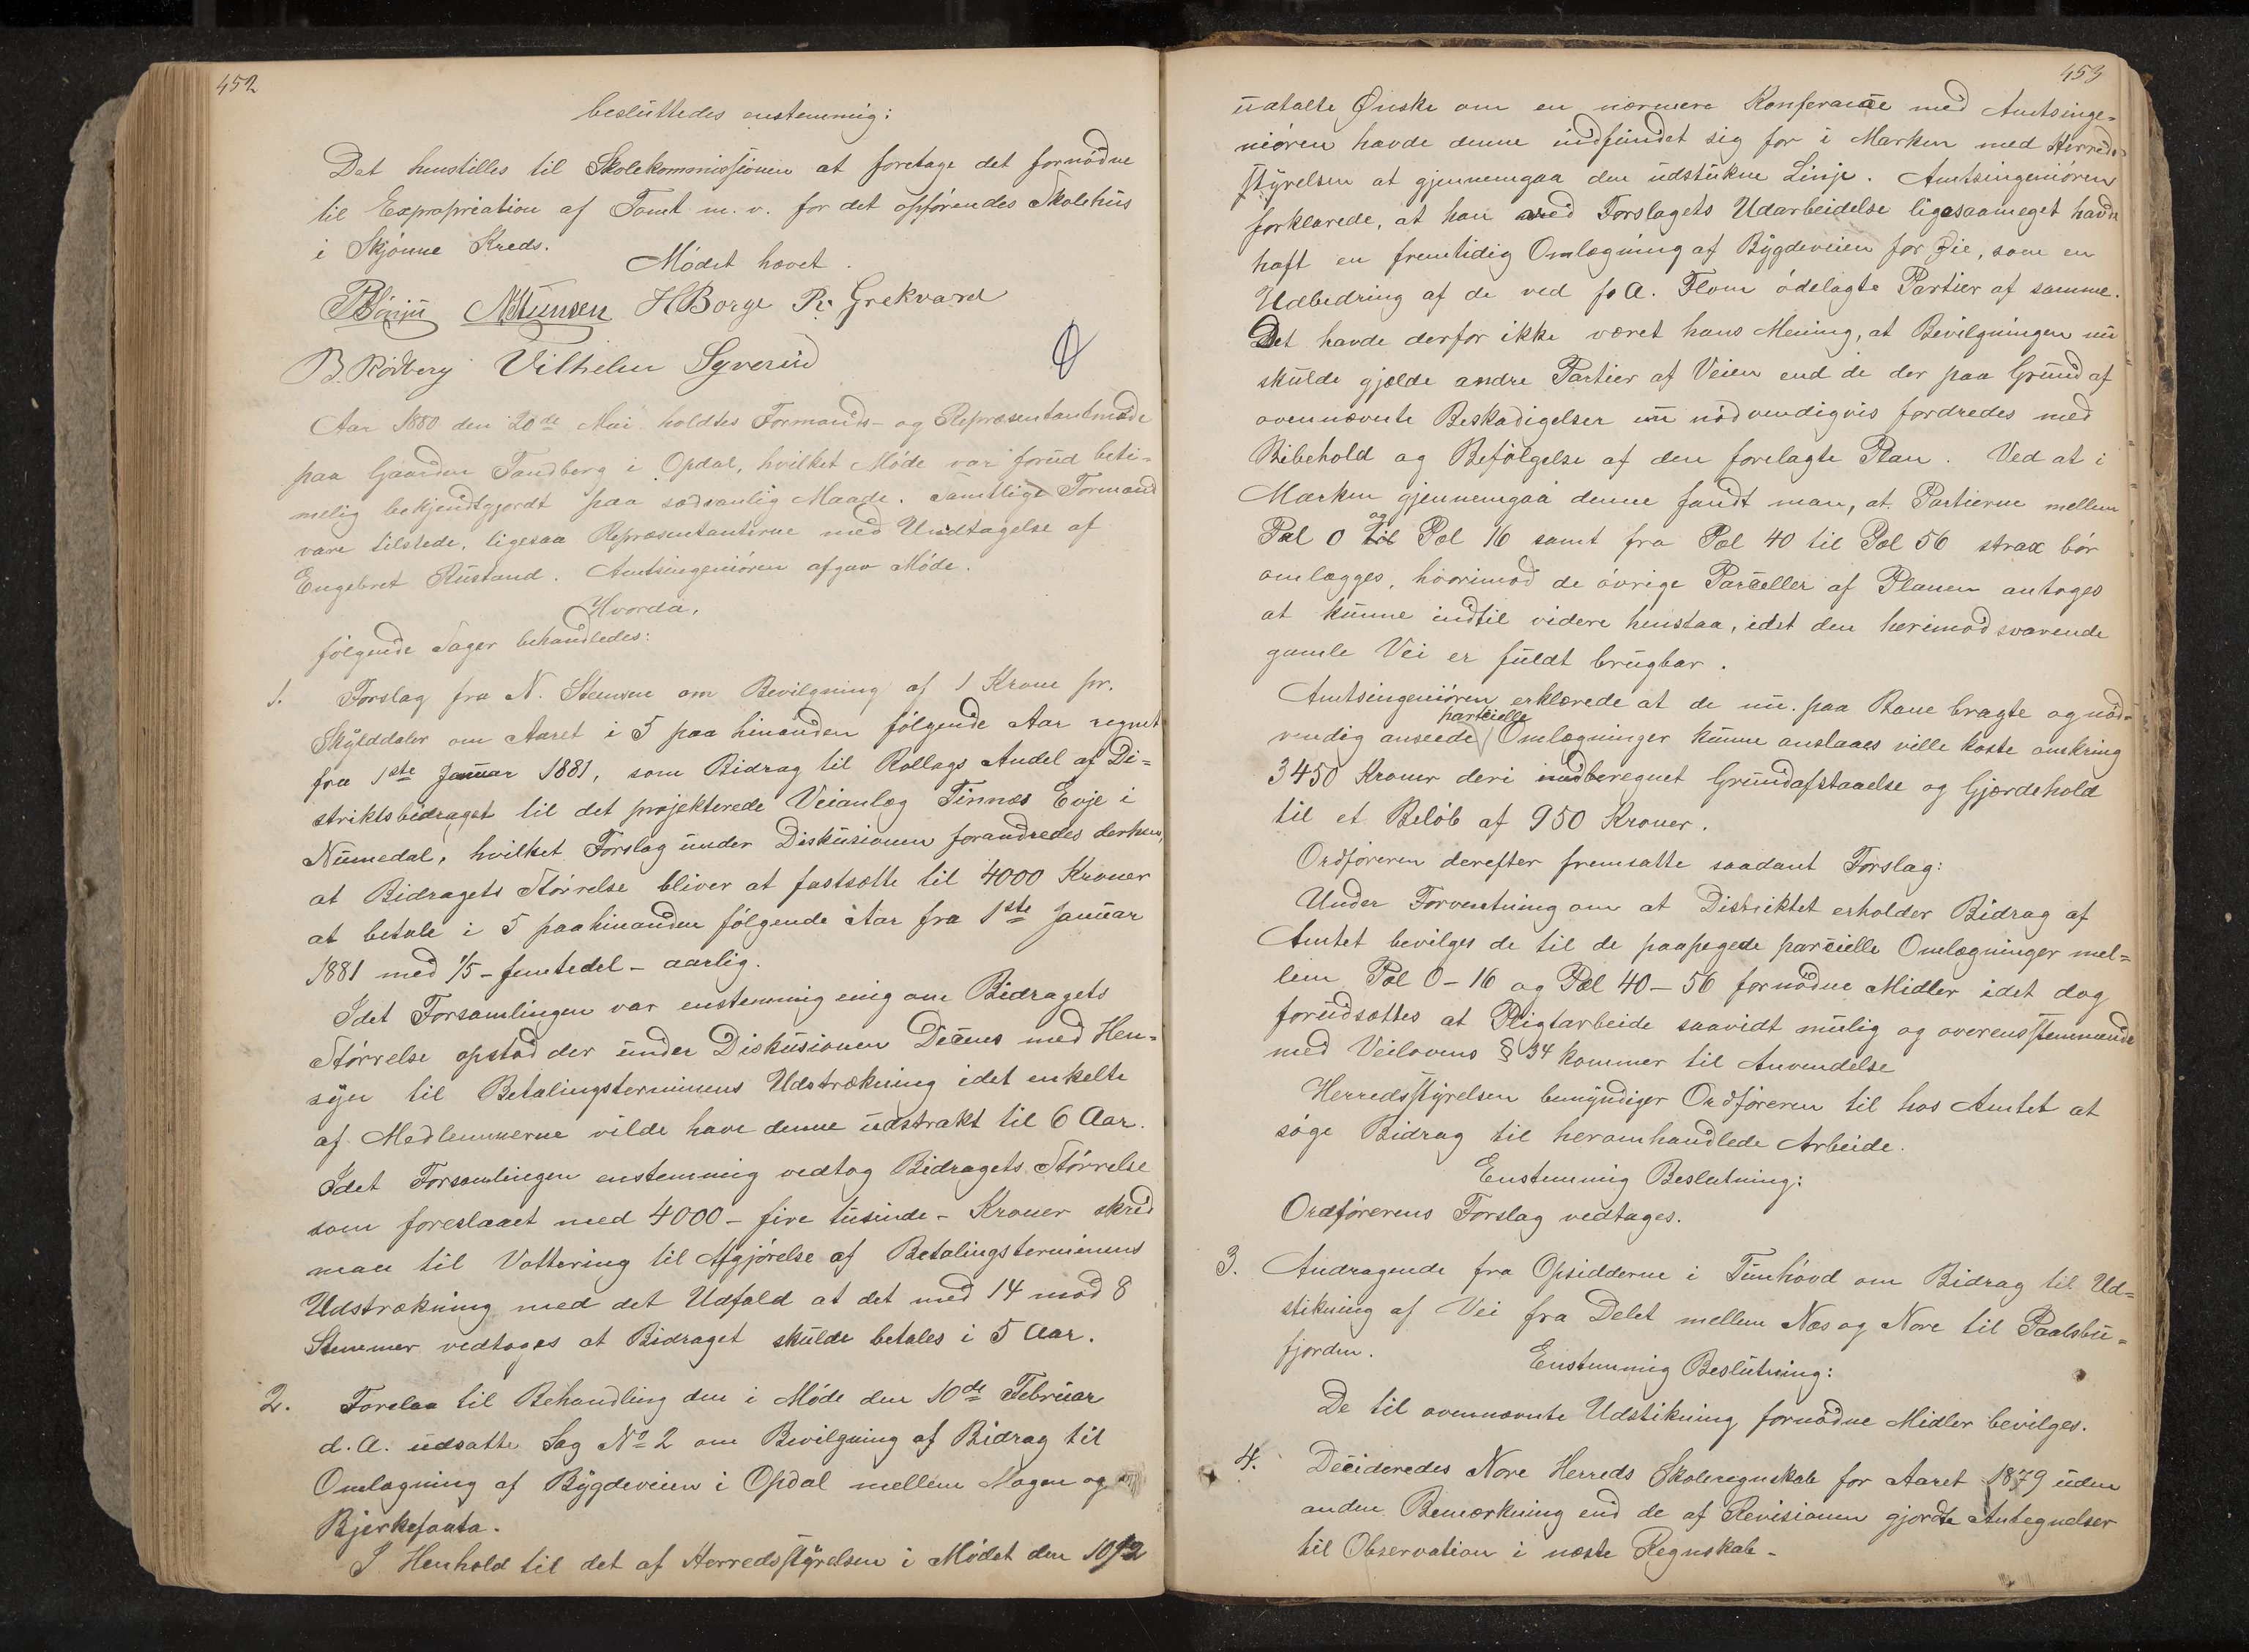 452
besluttedes enstemmig:
Det henstilles til Skolekommissionen at foretage det fornödne
til Expropriation af Tomt m. v. for det opförendes Skolehus
i Skjönne Kreds.
Mödet hævet.
N Stensen H Borge P. Grekvard
B. Rödberg Vilhelm Syverud
Aar 1880 den 20de Mai holdtes Formands- og Repræsentantmöde
paa Gaarden Tandberg i Opdal, hvilket Möde var forud beti=
melig bekjendtgjordt paa sædvanlig Maade. Samtlige Formænd
vare tilstede, ligesaa Repræsentanterne med Undtagelse af
Engebret Rustand. Amtsingeniören afgav Möde.
Hvorda,
fölgende Sager behandledes:
1. Forslag fra N. Steensen om Bevilgning af 1 Krone pr.
Skylddaler om Aaret i 5 paa hinanden fölgende Aar regnet
fra 1ste Januar 1881, som Bidrag til Rollags Andel af Di=
striktsbidraget til det projekterede Veianlæg Tinnæs Evje i
Numedal, hvilket Forslag under Diskusionen forandredes derhen,
at Bidragets Störrelse bliver at fastsætte til 4000 Kroner
at betale i 5 paahinanden fölgende Aar fra 1ste Januar
1881 med 1/5 - femtedel - aarlig.
Idet Forsamlingen var enstemmig enig om Bidragets
Störrelse opstod der under Diskusionen Decens med Hen=
syn til Betalingsterminens Udstrækning idet enkelte
af Medlemmerne vilde have denne udstrakt til 6 Aar.
Idet Forsamlingen enstemmig vedtog Bidragets Störrelse
som foreslaaet med 4000 - fire tusinde - Kroner skred
man til Vottering til Afgjörelse af Betalingsterminens
Udstrækning med det Udfald at det med 14 mod 8
Stemmer vedtoges at Bidraget skulde betales i 5 Aar.
2. Forelaa til Behandling den i Möde den 10de Februar
d. A. udsatte Sag No 2 om Bevilgning af Bidrag til
Omlægning af Bygdeveien i Opdal mellem Mogen og
Bjerkefonta.
I Henhold til det af Herredsstyrelsen i Mödet den 10/2
453
udtalte Ønske om en nærmere Konferance med Amtsinge=
niören havde denne indfundet sig for i Marken med Herreds=
styrelsen at gjennemgaa den udstukne Linje. Amtsingeniören
forklarede, at han ved Forslagets Udarbeidelse ligesaameget havde
haft en fremtidig Omlægning af Bygdeveien for Øie, som en
Udbedring af de ved f. A. Flom ödelagte Partier af samme.
Det havde derfor ikke været hans Mening, at Bevilgningen nu
skulde gjælde andre Partier af Veien end de der paa Grund af
ovennævnte Beskadigelser nu nödvendigvis fordredes med
Bibehold og Befölgelse af den forelagte Plan. Ved at i
Marken gjennemgaa denne fandt man, at Partierne mellem
og
Pæl 0 til Pæl 16 samt fra Pæl 40 til Pæl 56 strax bör
omlægges, hvorimod de övrige Parceller af Planen antoges
at kunne indtil videre henstaa, idet den herimod svarende
gamle Vei er fuldt brugbar.
Amtsingeniören erklærede at de nu paa Bane bragte og nöd=
parcielle
vendig ansees de Omlægninger kunne anslaaes ville koste omkring
3450 Kroner deri indberegnet Grundafstaaelse og Gjærdehold
til et Belöb af 950 Kroner.
Ordföreren derefter fremsatte saadant Forslag:
Under Forventning om at Distriktet erholder Bidrag af
Amtet bevilges de til de paapegede parcielle Omlægninger mel=
lem Pæl 0-16 og Pæl 40-56 fornödne Midler idet dog
forudsættes at Pligtarbeide saavidt mulig og overensstemmende
med Veilovens § 34 kommer til Anvendelse
Herredsstyrelsen bemyndiger Ordföreren til hos Amtet at
söge Bidrag til heromhandlede Arbeide.
Enstemmig Beslutning:
Ordförerens Forslag vedtages.
3. Andragende fra Opsidderne i Tunhövd om Bidrag til Ud=
stikning af Vei fra Delet mellem Næs og Nore til Paalsbu=
fjorden.
Enstemmig Beslutning:
De til ovennævnte Udstikning fornödne Midler bevilges.
4. Decideredes Nore Herreds Skoleregnskab for Aaret 1879 uden
anden Bemærkning end de af Revisionen gjordte Antegnelser
til Observation i næste Regnskab -